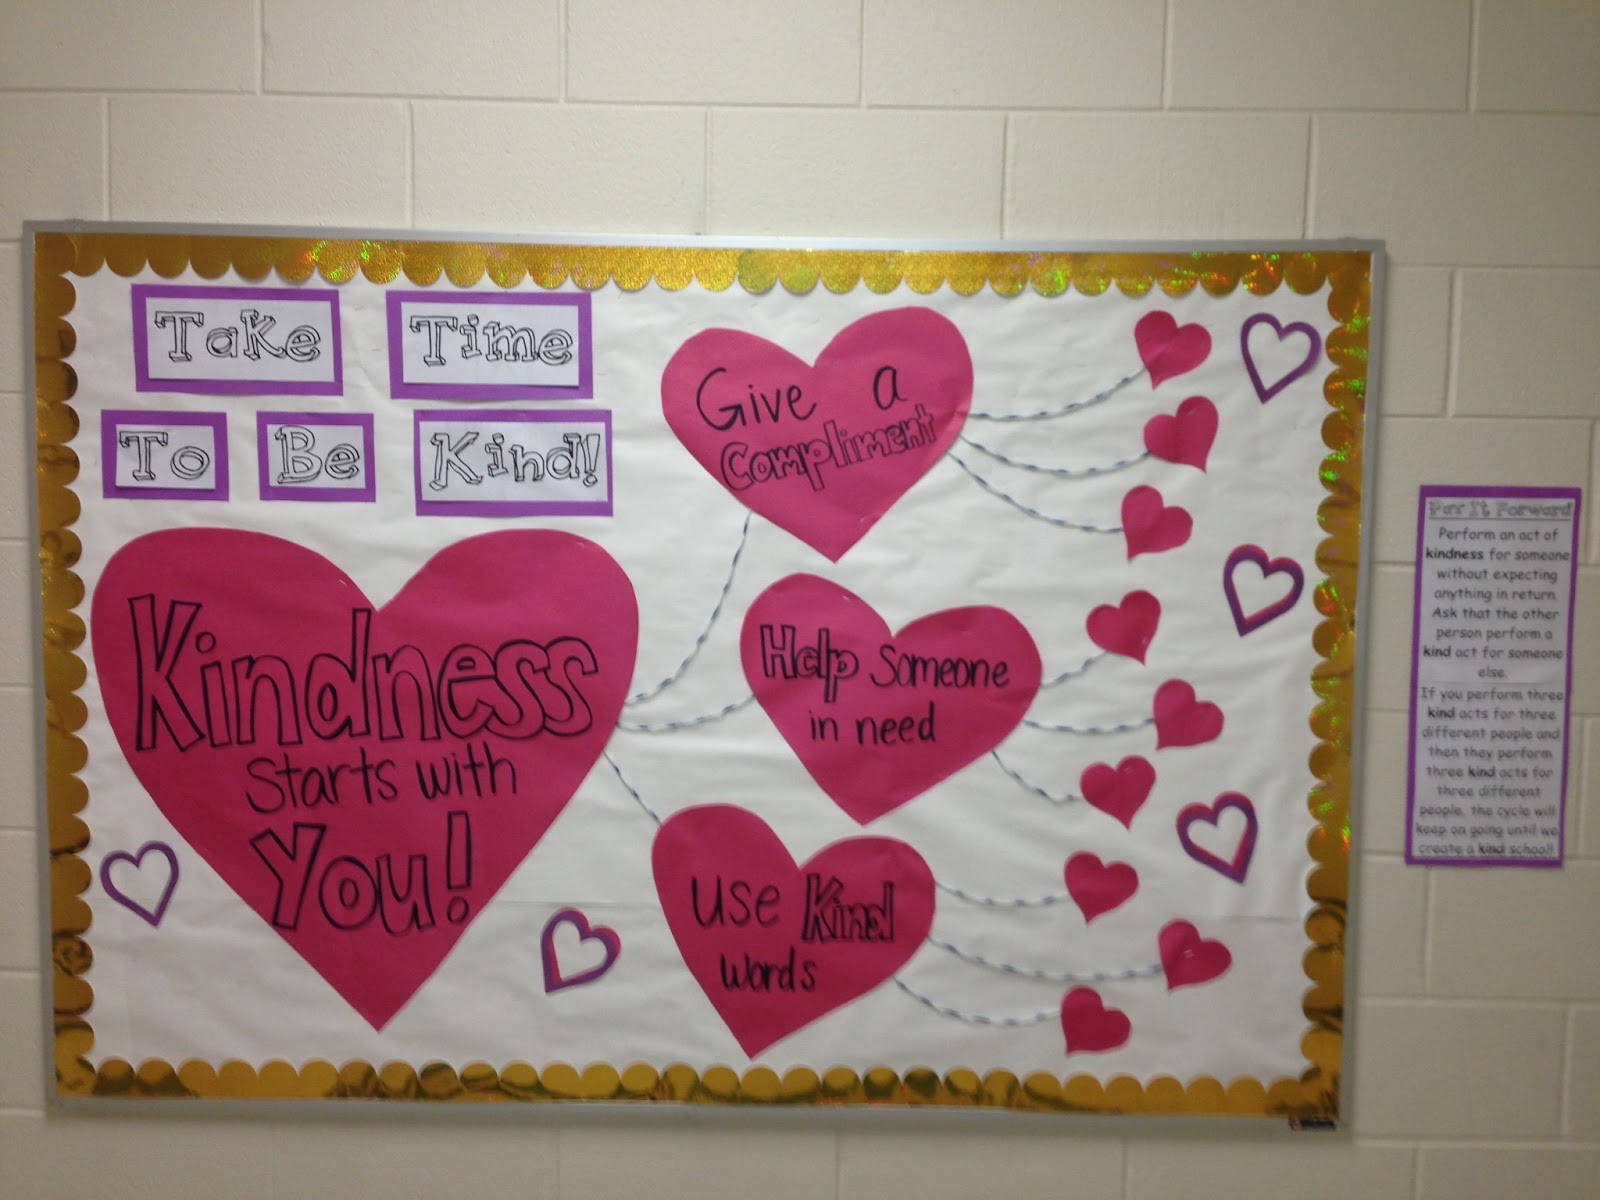 Take Time
To Be Kind!
Kindness
starts with
You!
Give a
Compliment
Help Someone
in need
Use Kind
words
Pay It Forward
Perform an act of
kindness for someone
without expecting
anything in return.
Ask that the other
person perform a
kind act for someone
else.
If you perform three
kind acts for three
different people and
then they perform
three kind acts for
three different
people, the cycle will
keep on going until we
create a kind school!